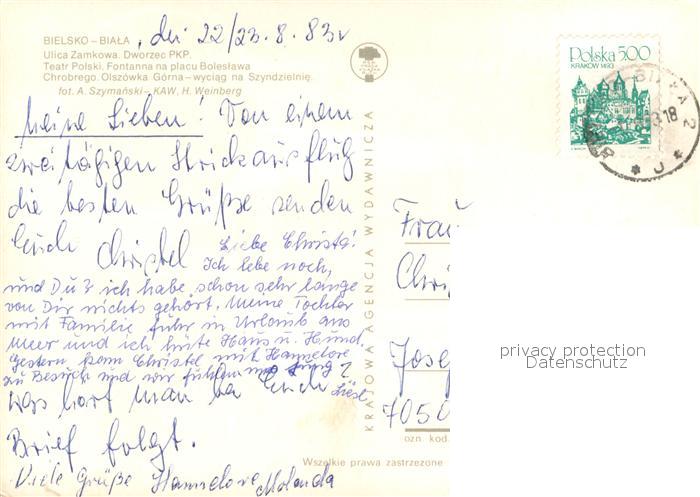 BIELSKO – BIAŁA , dn 22/23. 8. 83r
Ulica Zamkowa. Dworzec PKP.
Teatr Polski. Fontanna na placu Bolesława
Chrobrego. Olszówka Górna – wyciąg na Szyndzielnię.
fot. A. Szymański – KAW, H. Weinberg
Meine Lieben! Von einem
zweitägigen Strickausflug
die besten Grüße senden
Euch Christel
Liebe Christa!
Ich lebe noch,
und Du? ich habe schon sehr lange
von Dir nichts gehört. Meine Tochter
mit Familie fuhr in Urlaub ans
Meer und ich hüte Haus u. Hund.
Gestern kam Christel mit Hannelore
zu Besuch und wir fühlen uns jung
Liesl
Was hört man bei Euch?
Brief folgt.
Viele Grüße Hannelore Molenda
KRAJOWA AGENCJA WYDAWNICZA
Polska 5.00
KRAKÓW 1493
18
2
Frau
Chri
Josep
7050
ozn. kod.
Wszelkie prawa zastrzeżone
privacy protection
Datenschutz